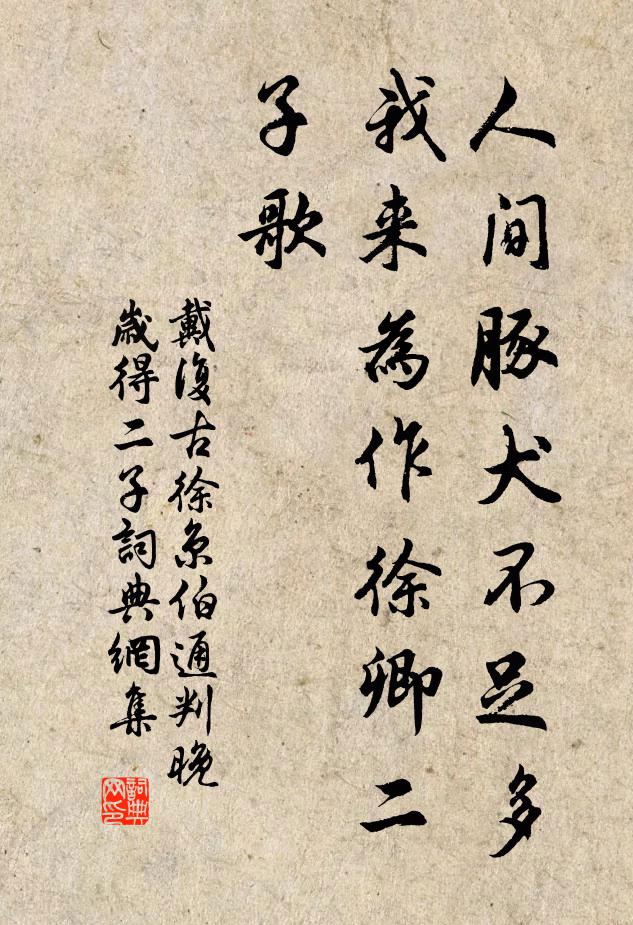 人間豚犬不足多
我来為作徐卿二
子歌
戴復古徐京伯通判晚
歲得二子詞典網集
詞典
网印